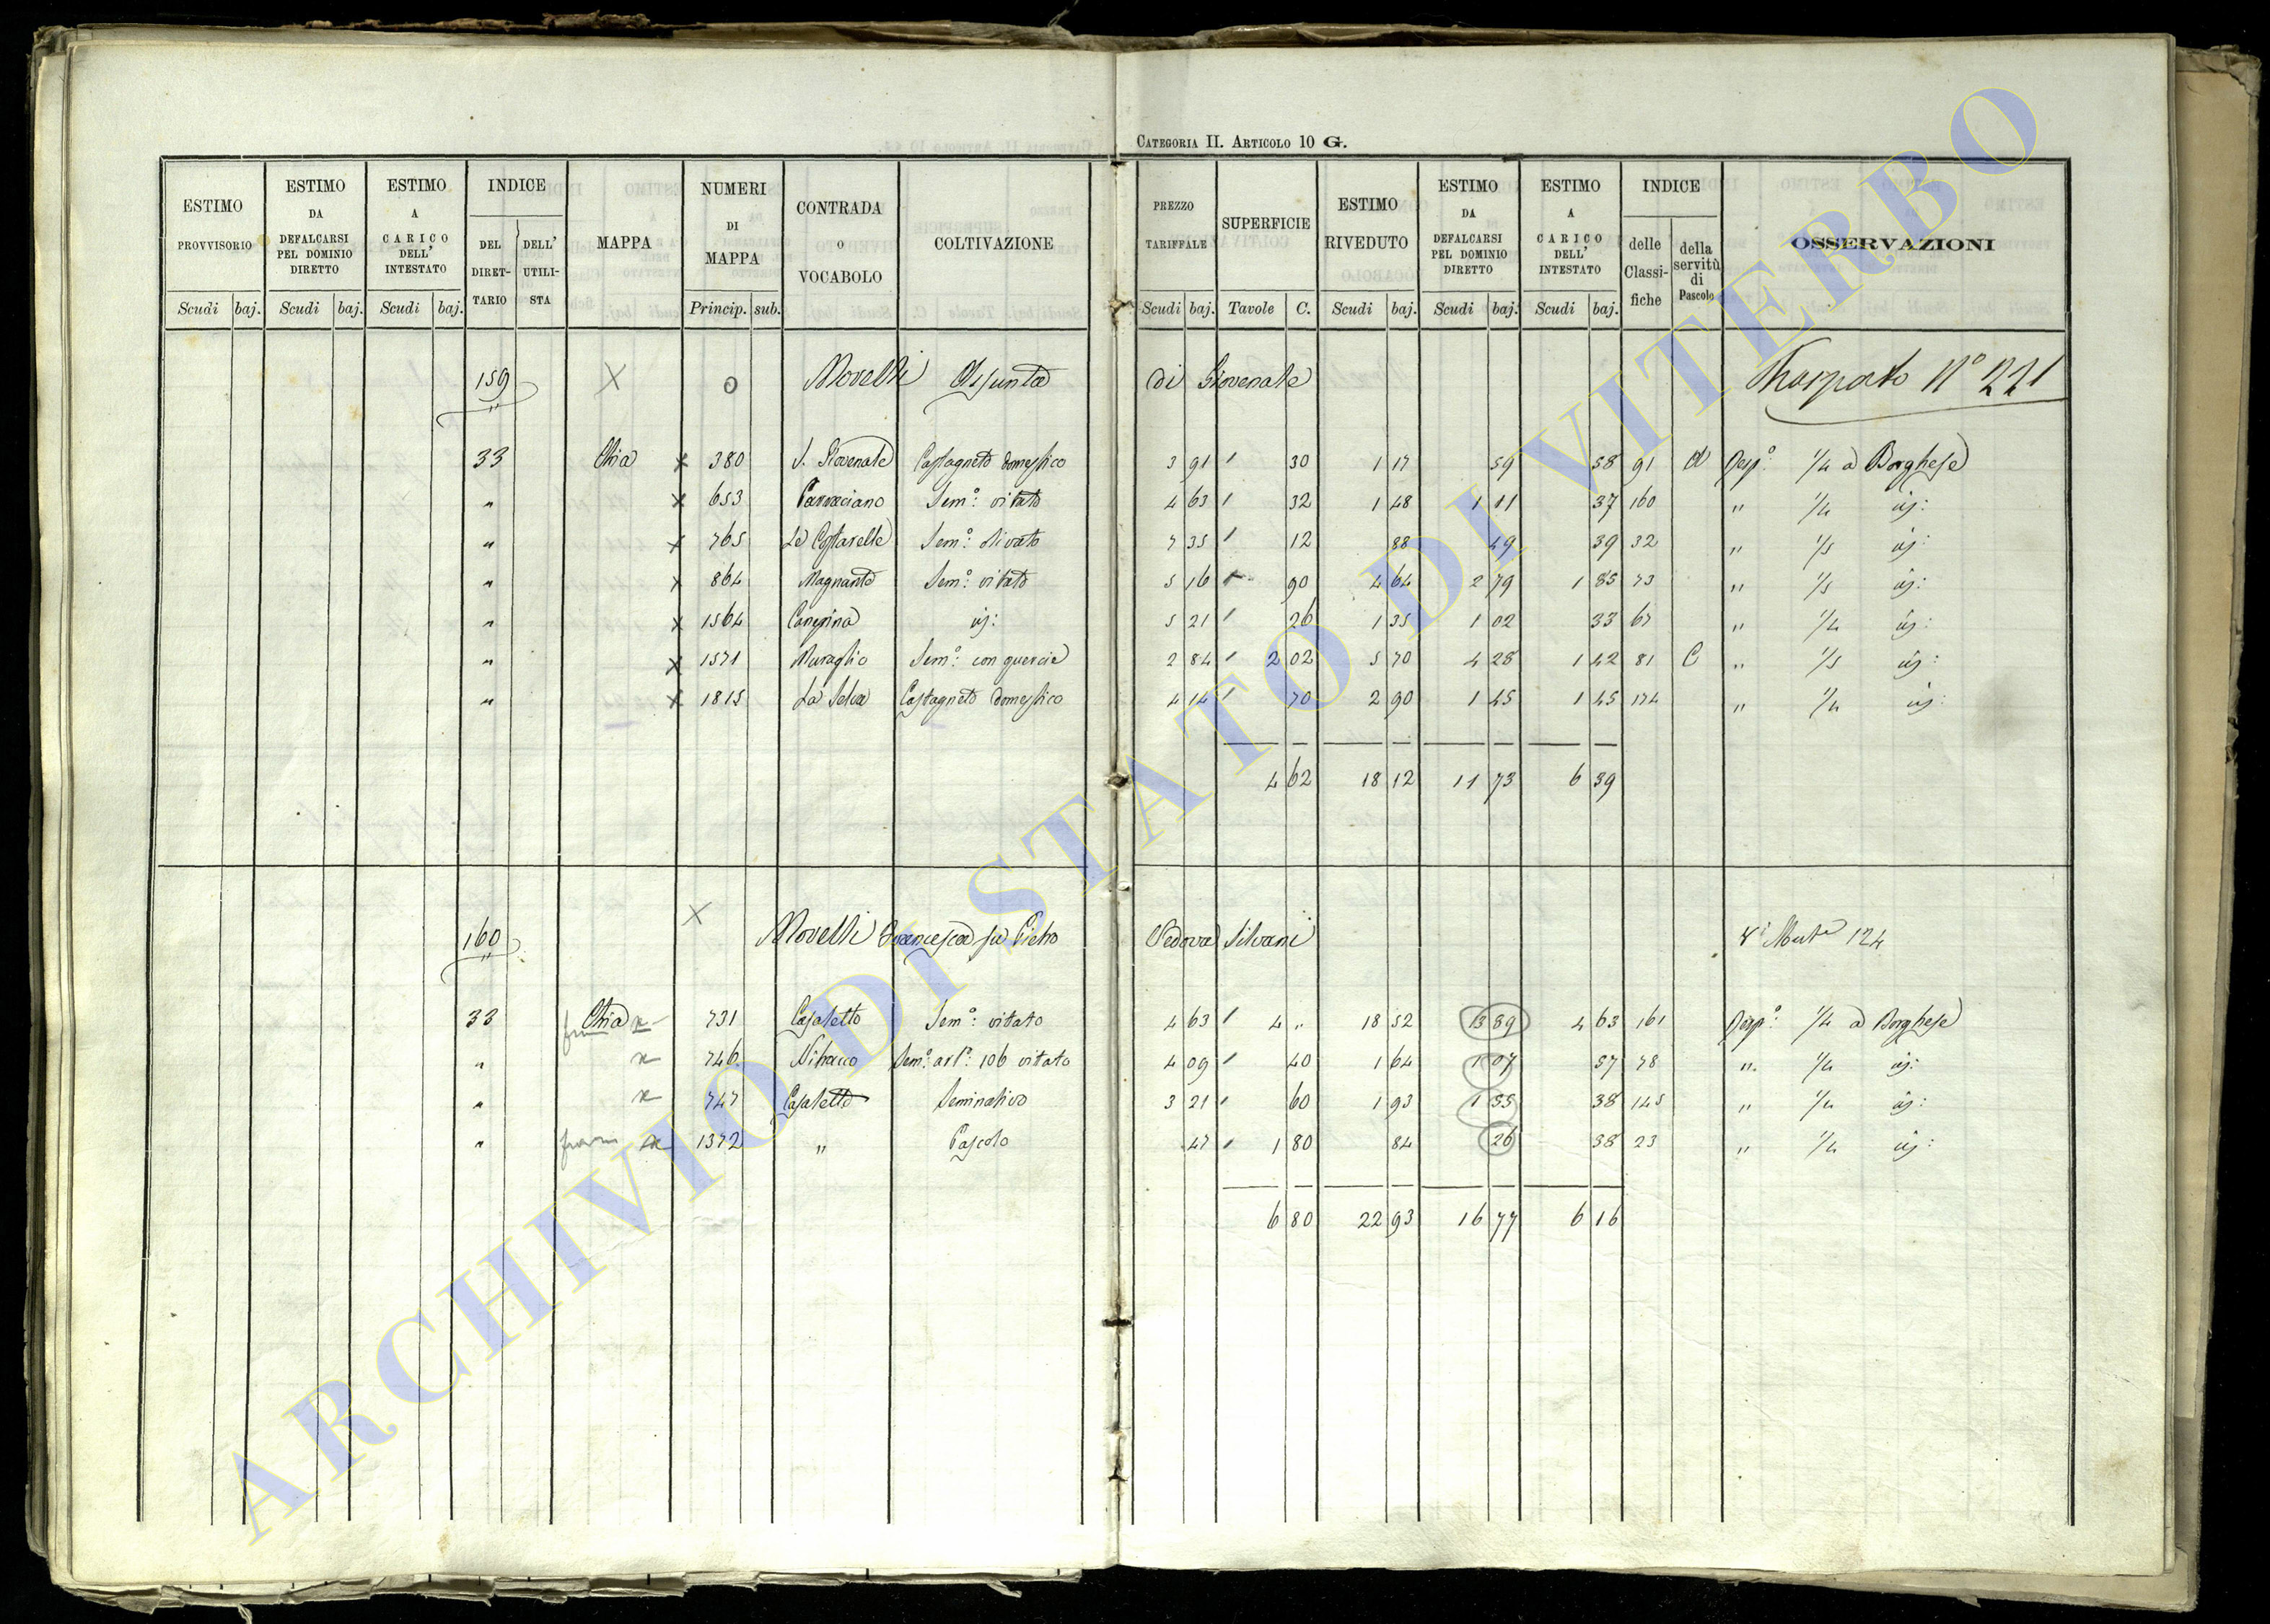 CATEGORIA II. ARTICOLO 10 G.
ESTIMO PROVVISORIO Scudi baj.
ESTIMO DA DEFALCARSI PEL DOMINIO DIRETTO Scudi baj.
ESTIMO A CARICO DELL' INTESTATO Scudi baj.
INDICE DEL DIRET- TARIO DELL' UTILI- STA
MAPPA
NUMERI DI MAPPA Princip. sub.
CONTRADA O VOCABOLO
COLTIVAZIONE
PREZZO TARIFFALE Scudi baj.
SUPERFICIE Tavole C.
ESTIMO RIVEDUTO Scudi baj.
ESTIMO DA DEFALCARSI PEL DOMINIO DIRETTO Scudi baj.
ESTIMO A CARICO DELL' INTESTATO Scudi baj.
INDICE delle Classi- fiche della servitù di Pascolo
OSSERVAZIONI
159 Novelli Assunta di Giovenale Trasporto N° 221
33 Chia x 380 S. Giovenale Castagneto domestico 3 91 30 1 17 59 58 91 d Risp° 1/4 a Borghese
" x 653 Sem°: vitato 4 63 32 1 48 1 11 37 160 " 1/4 id:
" x 765 Le Costarelle Sem°: olivato 7 35 12 88 49 39 32 " 1/5 id:
" x 864 Magnante Sem°: vitato 5 16 90 4 64 2 79 1 85 73 " 1/5 id:
" x 1564 id: 5 21 26 1 35 1 02 33 67 " 1/4 id:
" x 1571 Muraglio Sem°: con quercie 2 84 2 02 5 70 4 28 1 42 81 C " 1/5 id:
" x 1815 La Selva Castagneto domestico 4 14 70 2 90 1 45 1 45 174 " 1/4 id:
4 62 18 12 11 73 6 39
160 Novelli Francesca fu Pietro Vedova Silvani Vi Muta 124
33 Chia x 731 Casaletto Sem°: vitato 4 63 4 " 18 52 13 89 4 63 161 Risp° 1/4 a Borghese
" x 746 Sem°: art°: 106 vitato 4 09 40 1 64 1 07 57 78 " 1/4 id:
" x 747 Casaletto Seminativo 3 21 60 1 93 1 55 38 145 " 1/4 id:
" x 1372 " Pascolo 47 1 80 84 26 38 23 " 1/4 id:
6 80 22 93 16 77 6 16
ARCHIVIO DI STATO DI VITERBO